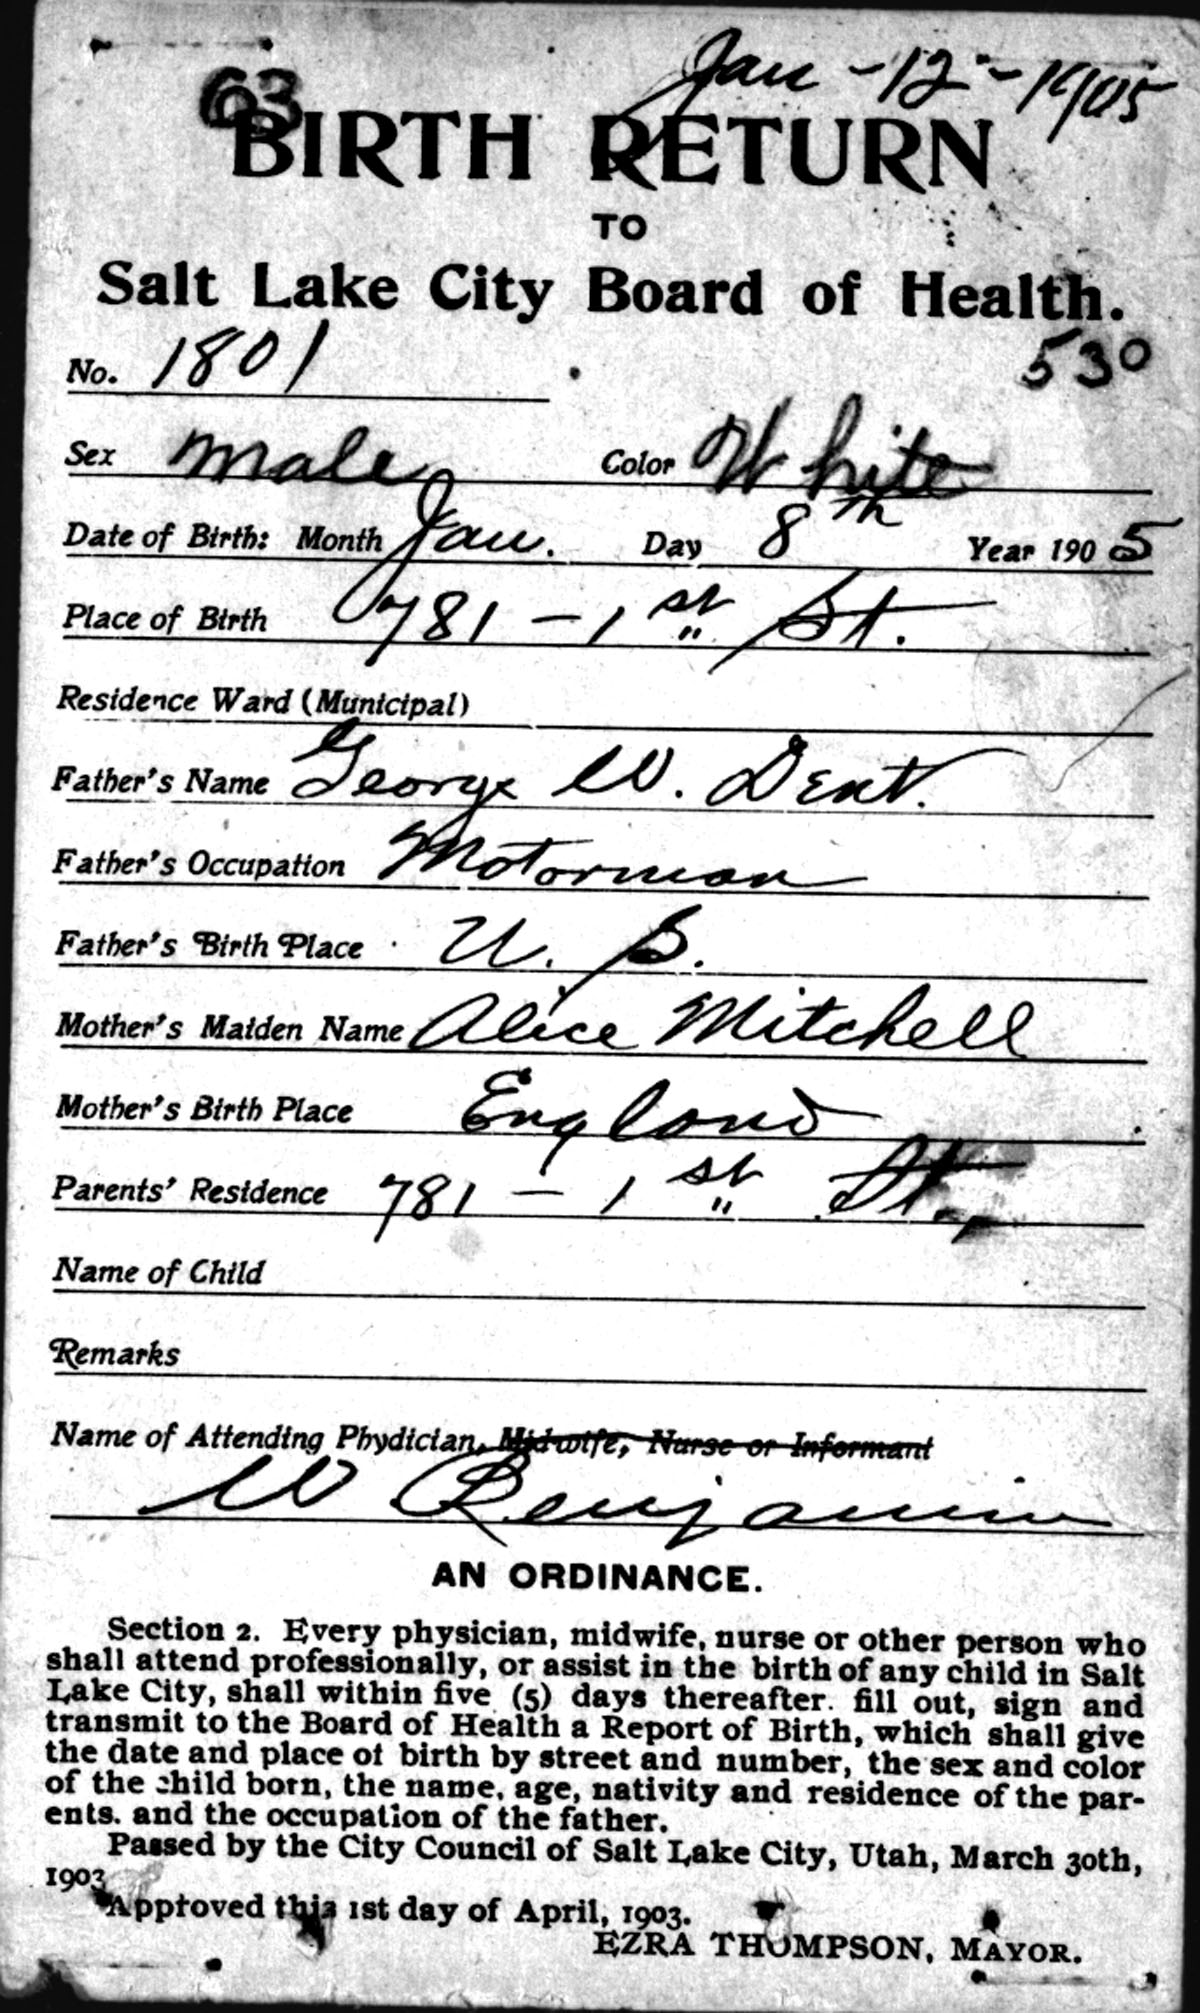 Jan - 12 - 1905
63
BIRTH RETURN
TO
Salt Lake City Board of Health.
No. 1801 530
Sex Male Color White
Date of Birth: Month Jan. Day 8th Year 1905
Place of Birth 781 - 1st St.
Residence Ward (Municipal)
Father's Name George W. Dent.
Father's Occupation Motorman
Father's Birth Place U. S.
Mother's Maiden Name Alice Mitchell
Mother's Birth Place England
Parents' Residence 781 - 1st St.
Name of Child
Remarks
Name of Attending Phydician, Midwife, Nurse or Informant
W Benjamin
AN ORDINANCE.
Section 2. Every physician, midwife, nurse or other person who
shall attend professionally, or assist in the birth of any child in Salt
Lake City, shall within five (5) days thereafter. fill out, sign and
transmit to the Board of Health a Report of Birth, which shall give
the date and place of birth by street and number, the sex and color
of the child born, the name, age, nativity and residence of the par-
ents. and the occupation of the father.
Passed by the City Council of Salt Lake City, Utah, March 30th,
1903
Approved this 1st day of April, 1903.
EZRA THOMPSON, MAYOR.